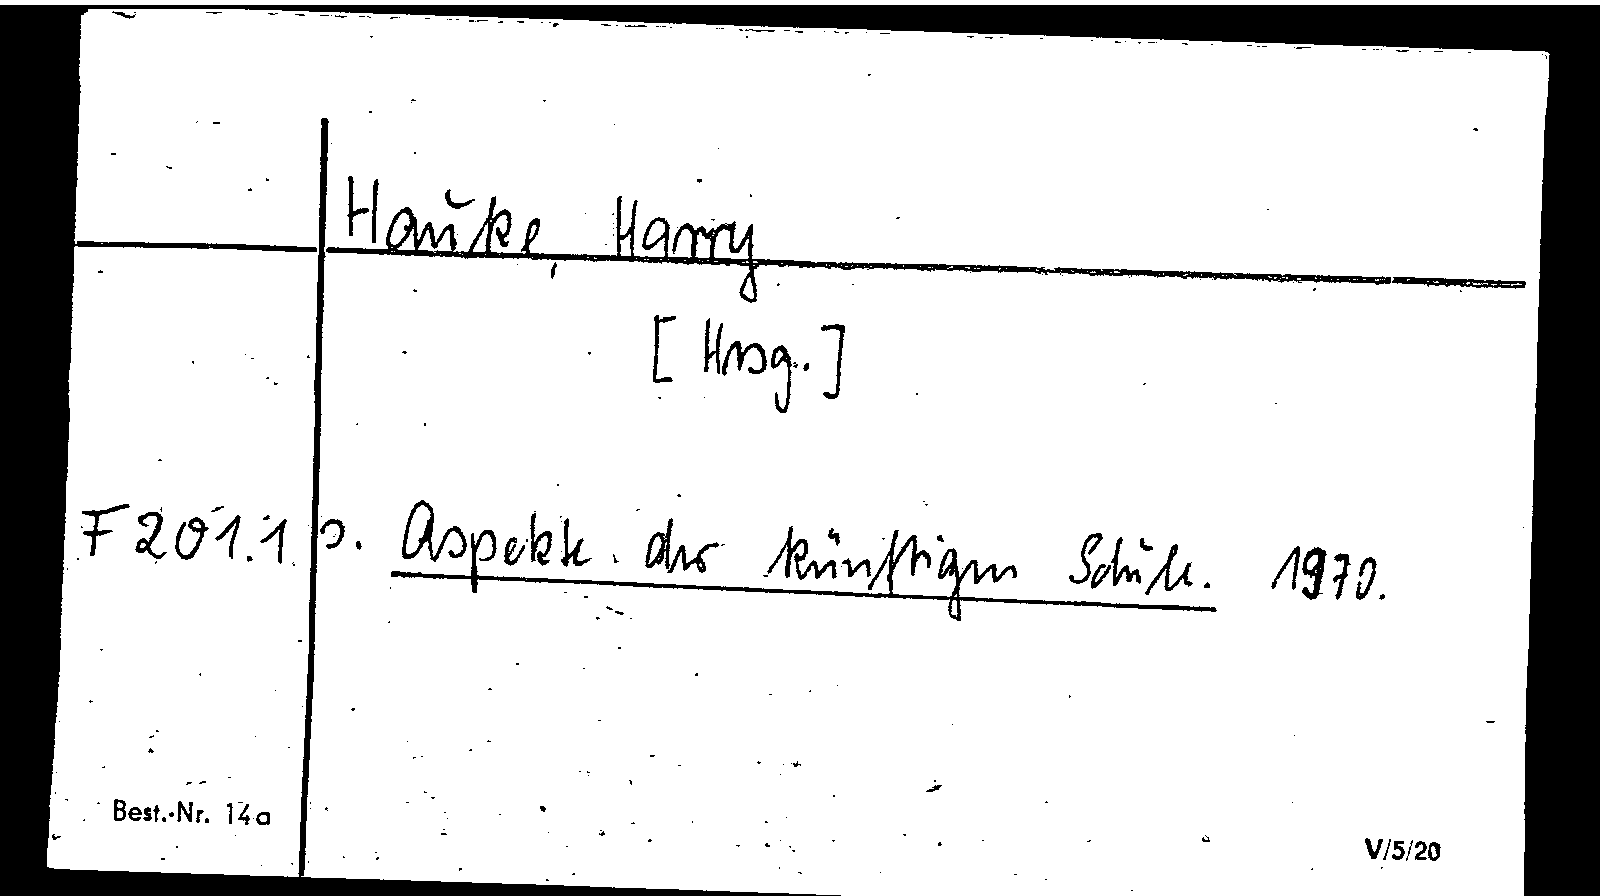 Hauke, Harry
[Hrsg.]
F 201.1 s. Aspekte der künftigen Schule. 1970.
Best.-Nr. 14a
V/5/20